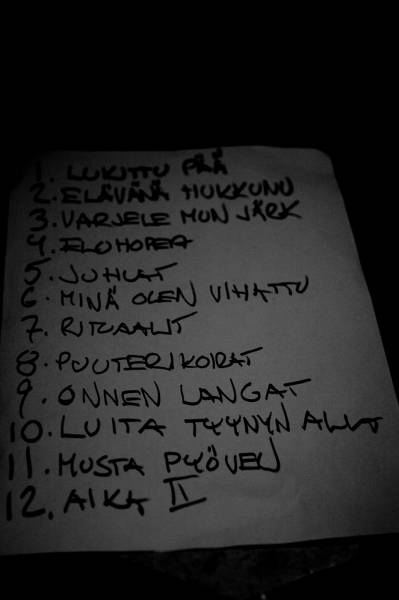 1. LUKITTU PÄÄ
2. ELÄVÄNÄ HUKKUNU
3. VARJELE MUN JÄRK
4. ELOHOPEA
5. JUHLAT
6. MINÄ OLEN VIHATTU
7. RITUAALIT
8. PUUTERIKOIRAT
9. ONNEN LANGAT
10. LUITA TYYNYN ALLA
11. MUSTA PYÖVELI
12. AIKA II